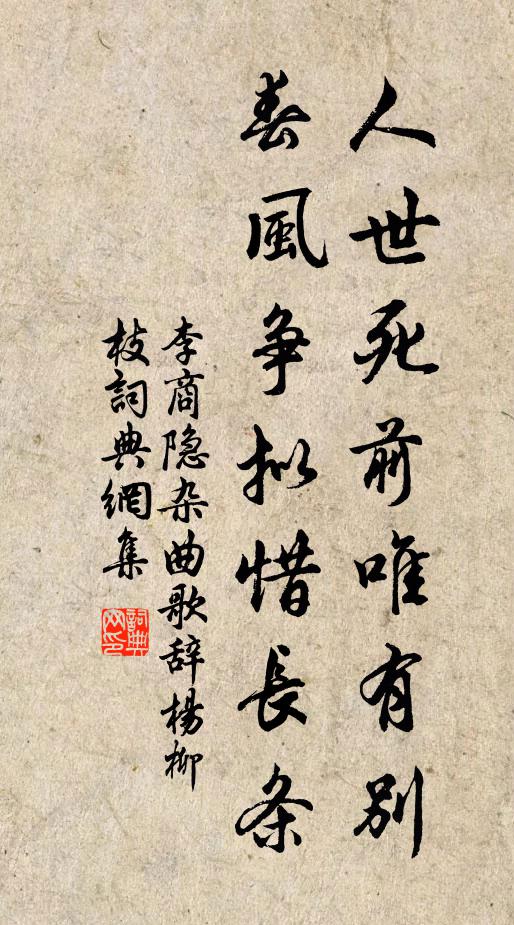 人世死前唯有別
春風争拟惜長条
李商隐杂曲歌辞楊柳
枝詞典網集
詞典网印